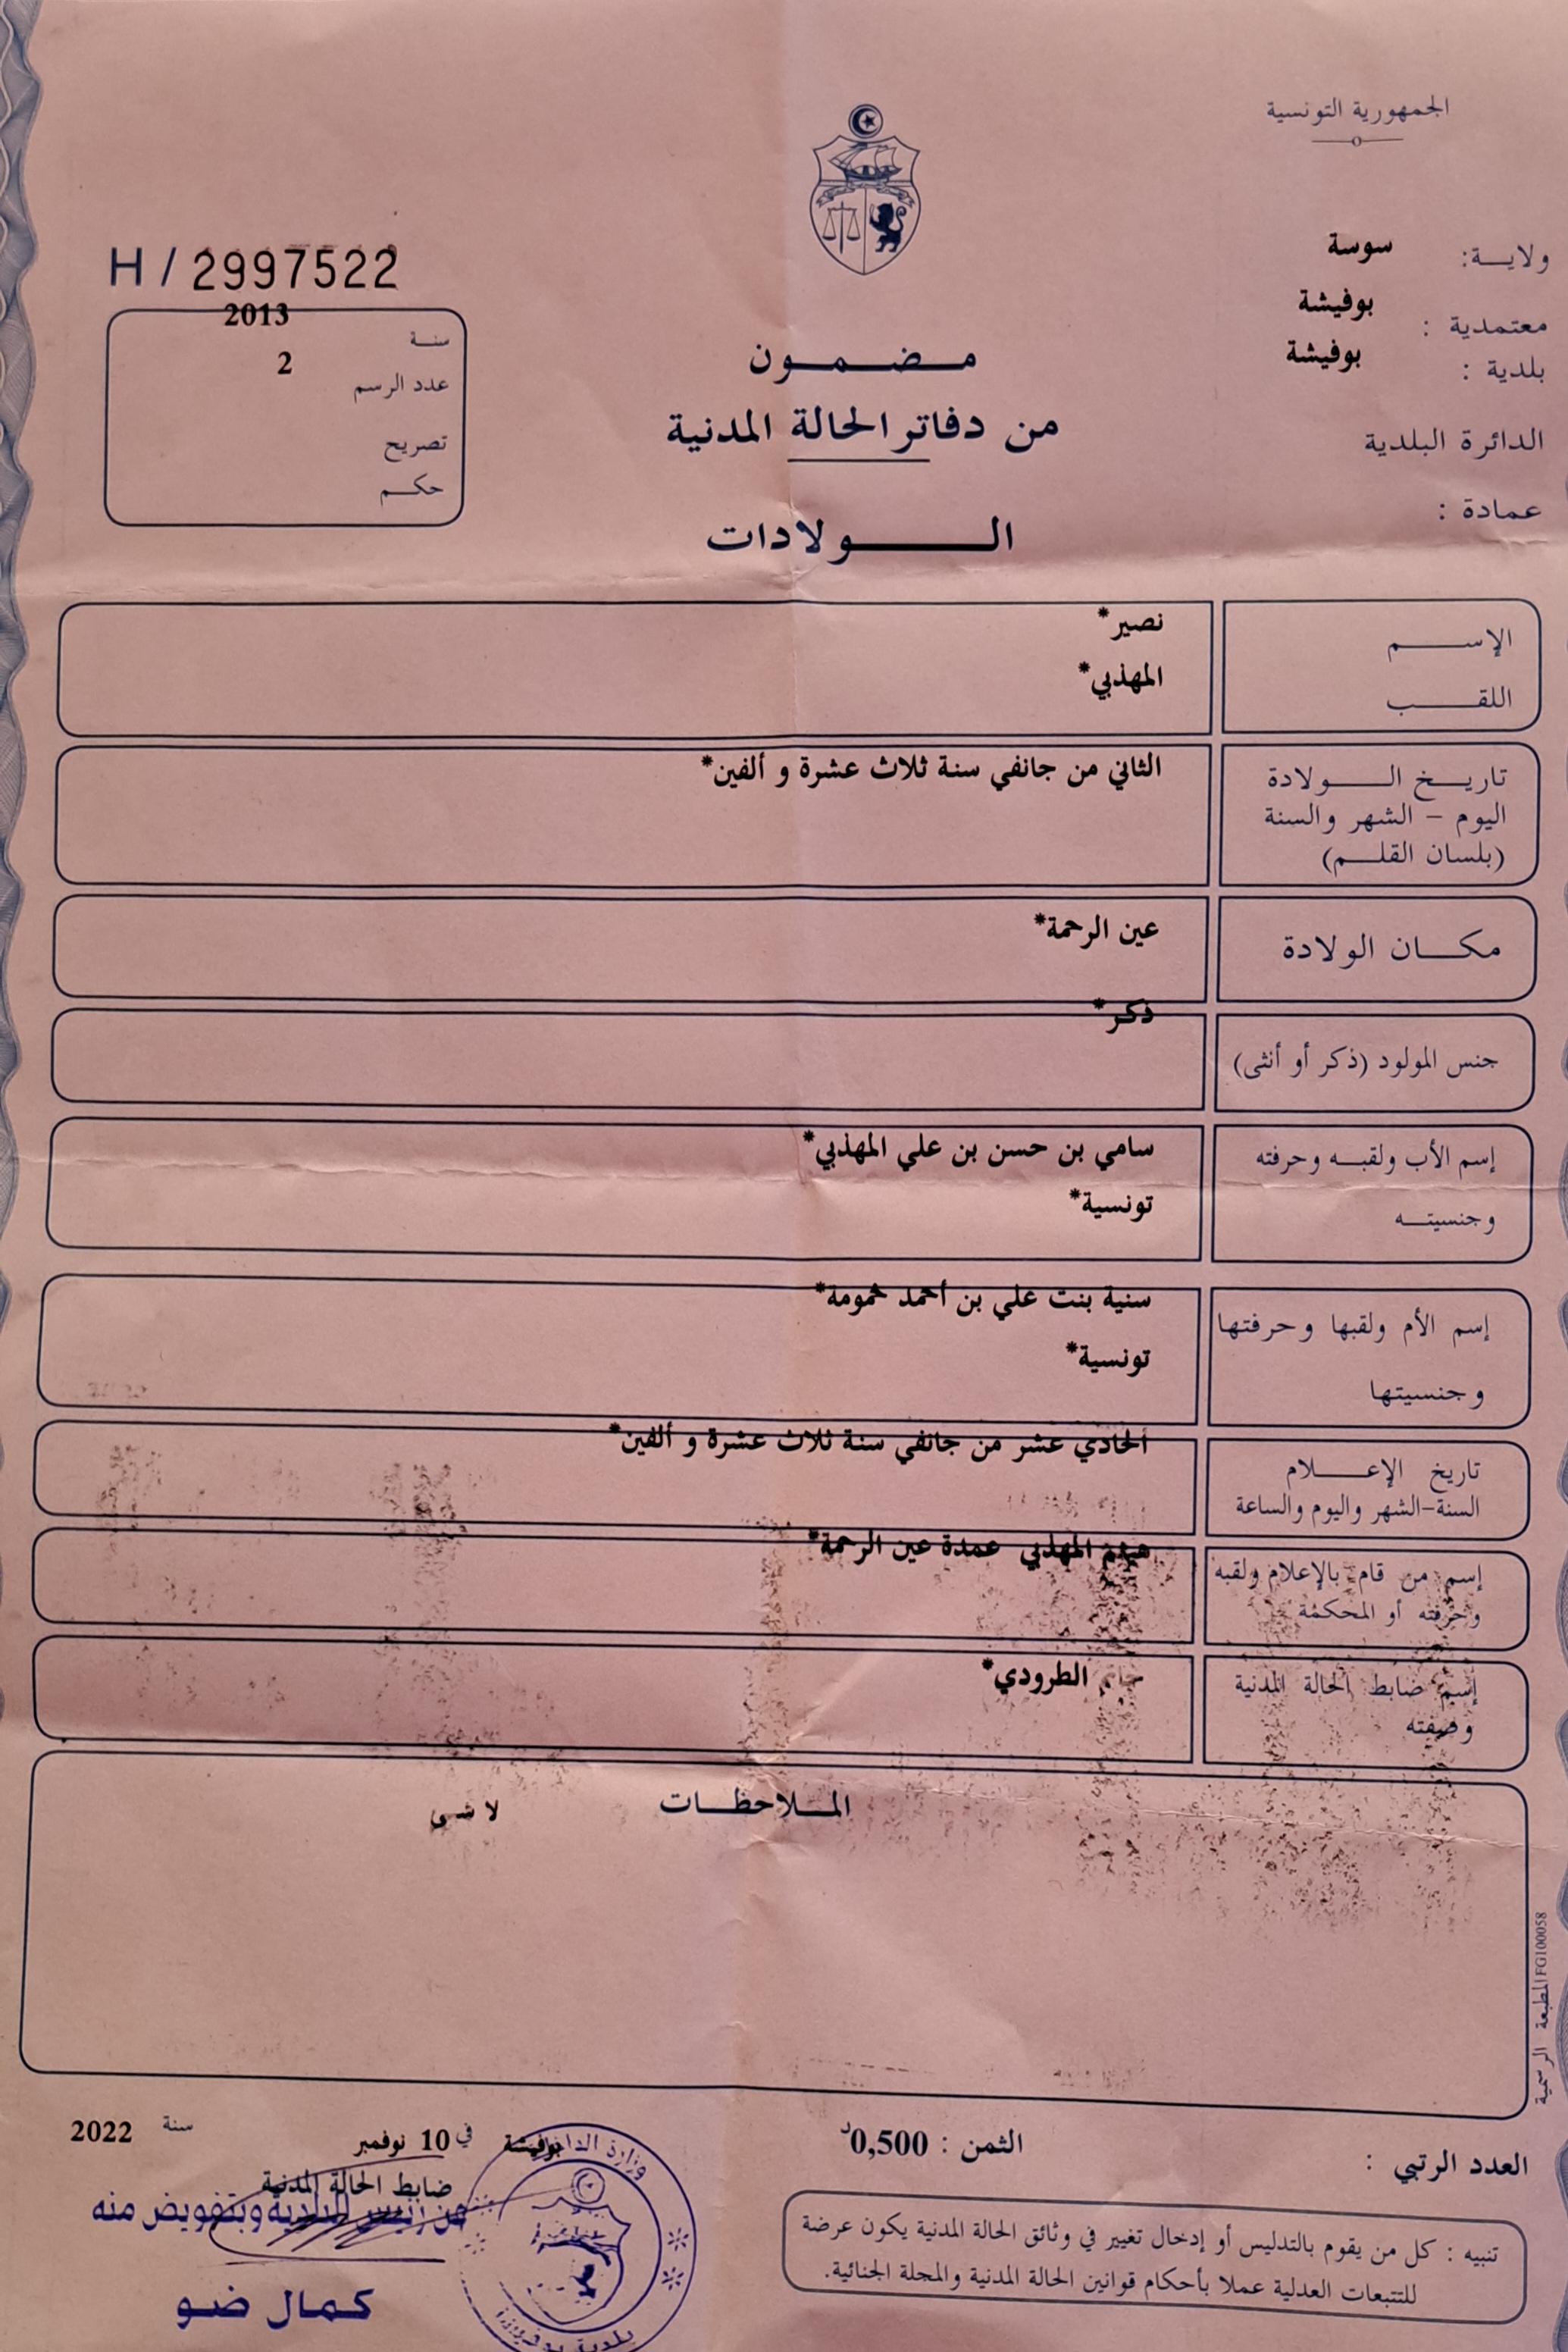 الجمهورية التونسية
ولايـــة: سوسة
معتمدية : بوفيشة
بلدية : بوفيشة
الدائرة البلدية
عمادة :
H / 2997522
سنــة 2013
عدد الرسم 2
تصريح
حكــم
مـضـمـون
من دفاتر الحالة المدنية
الـــولادات
الإســـم نصير*
اللقــب المهذبي*
تاريــخ الـــولادة
اليوم – الشهر والسنة
(بلسان القلــم)
الثاني من جانفي سنة ثلاث عشرة و ألفين*
مكــان الولادة عين الرحمة*
جنس المولود (ذكر أو أنثى) ذكر*
إسم الأب ولقبــه وحرفته سامي بن حسن بن علي المهذبي*
وجنسيتــه تونسية*
إسم الأم ولقبها وحرفتها سنية بنت علي بن أحمد حمومة*
وجنسيتها تونسية*
تاريخ الإعـــلام
السنة-الشهر واليوم والساعة
الحادي عشر من جانفي سنة ثلاث عشرة و ألفين*
إسم من قام بالإعلام ولقبه
وحرفته أو المحكمة
المهذبي عمدة عين الرحمة*
إسم ضابط الحالة المدنية
وصفته
الطرودي*
المــلاحظــات لا شى
المطبعة الرسمية FG100058
بوفيشة في 10 نوفمبر سنة 2022
ضابط الحالة المدنية
عن رئيس البلدية وبتفويض منه
كمال ضو
وزارة الداخلية
الثمن : 0,500د
العدد الرتبي :
تنبيه : كل من يقوم بالتدليس أو إدخال تغيير في وثائق الحالة المدنية يكون عرضة
للتتبعات العدلية عملا بأحكام قوانين الحالة المدنية والمجلة الجنائية.